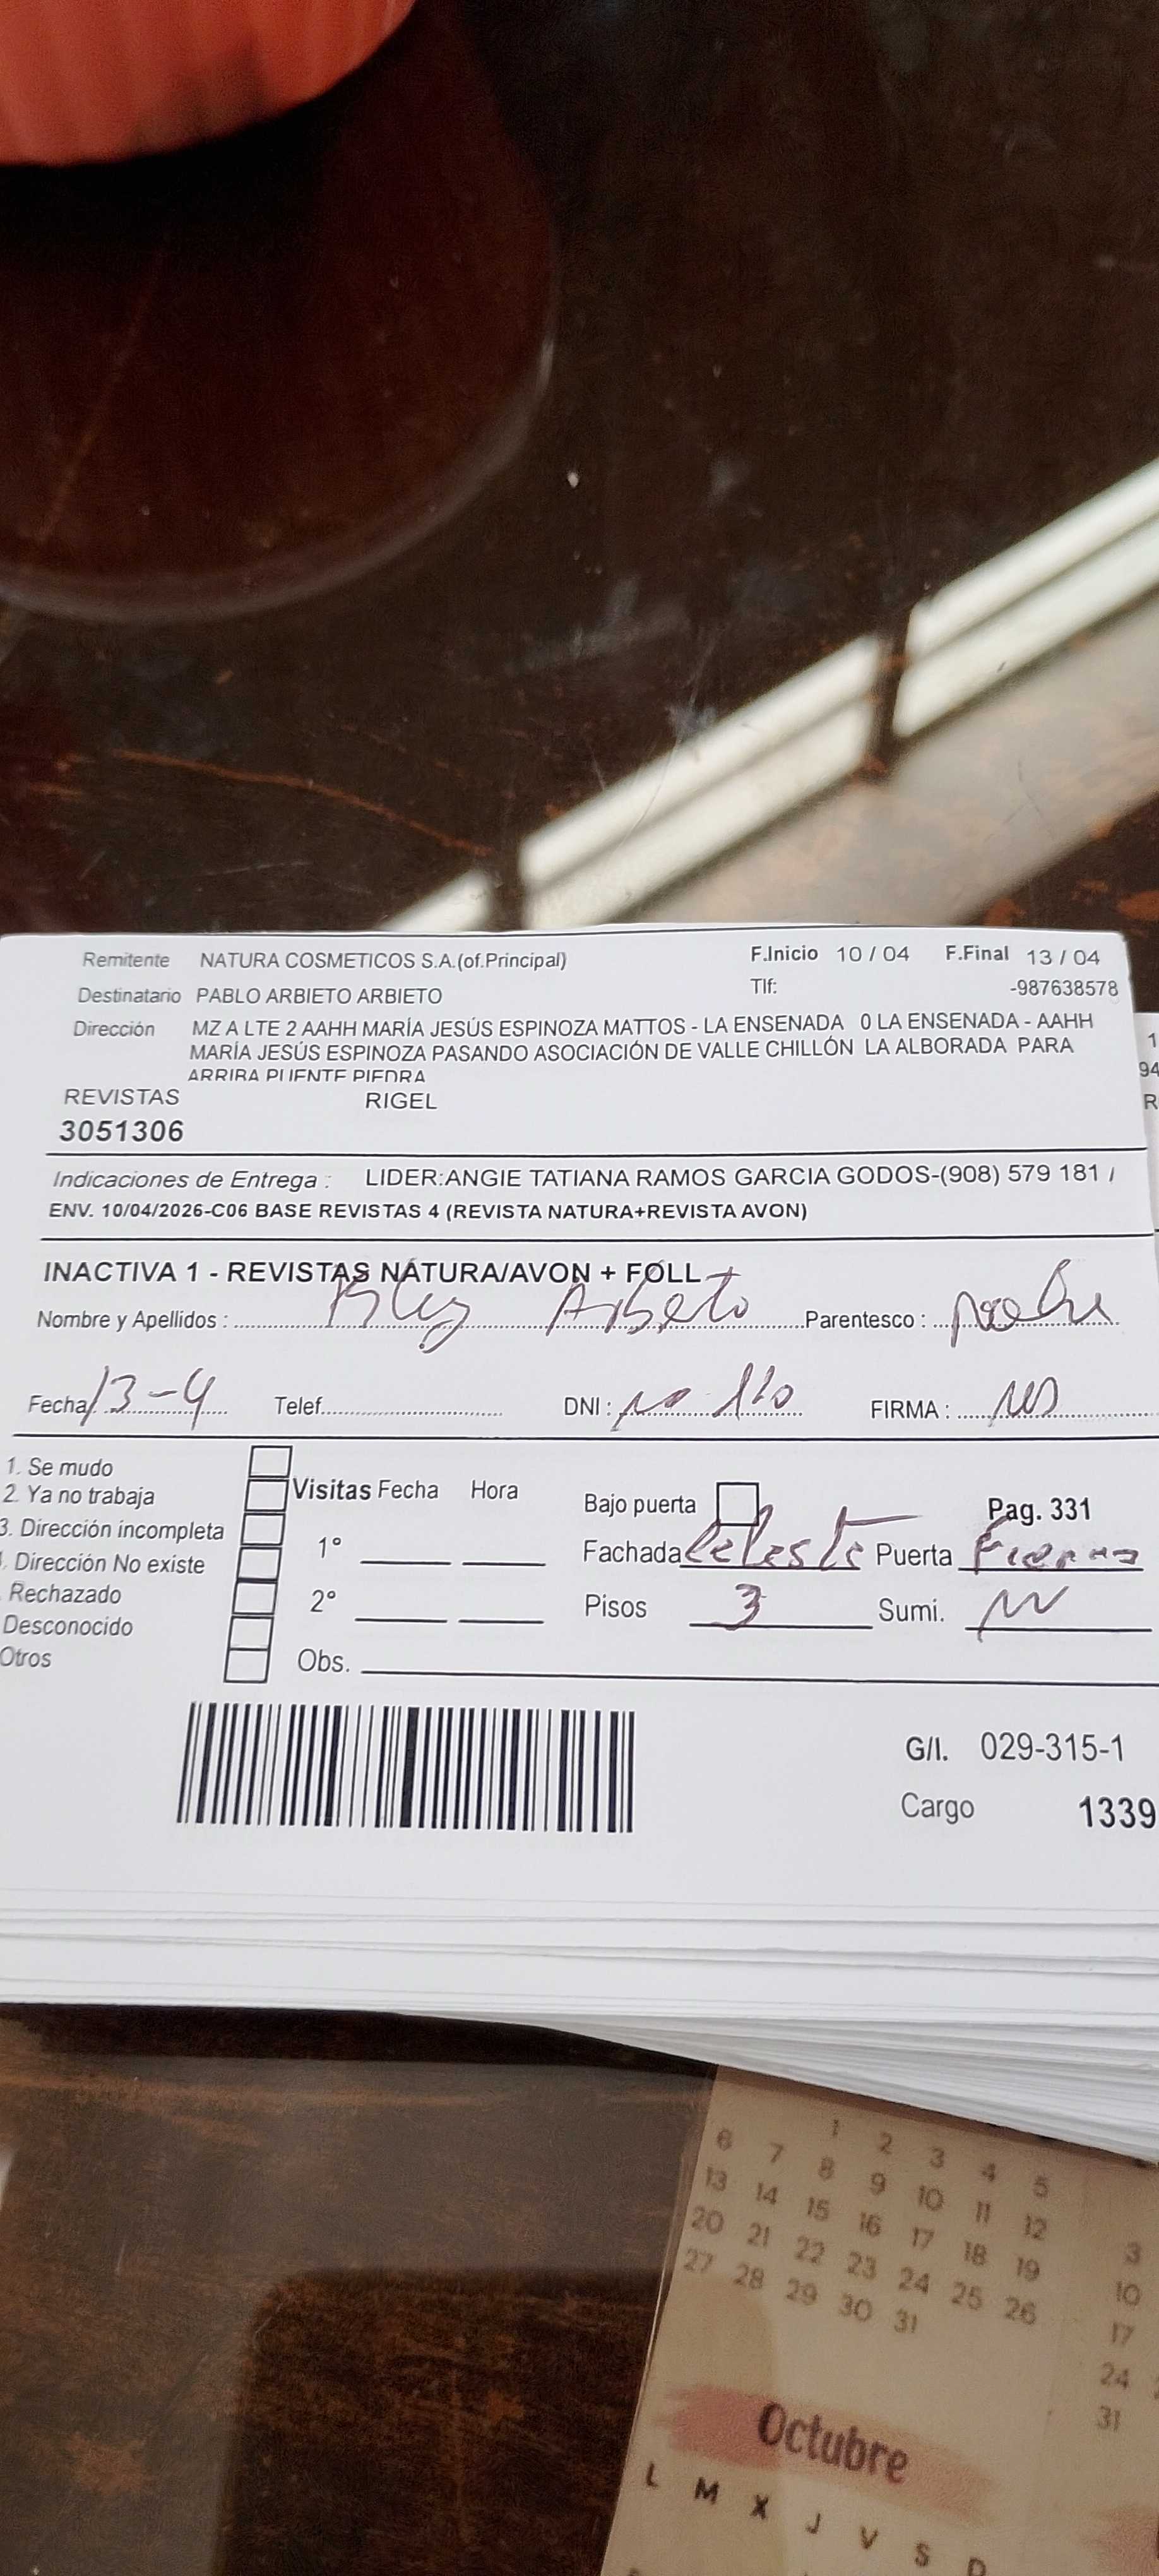 Remitente NATURA COSMETICOS S.A.(of.Principal) F.Inicio 10 / 04 F.Final 13 / 04
Destinatario PABLO ARBIETO ARBIETO Tlf: -987638578
Dirección MZ A LTE 2 AAHH MARÍA JESÚS ESPINOZA MATTOS - LA ENSENADA 0 LA ENSENADA - AAHH
MARÍA JESÚS ESPINOZA PASANDO ASOCIACIÓN DE VALLE CHILLÓN LA ALBORADA PARA
ARRIBA PUENTE PIEDRA
REVISTAS RIGEL
3051306
Indicaciones de Entrega : LIDER:ANGIE TATIANA RAMOS GARCIA GODOS-(908) 579 181 /
ENV. 10/04/2026-C06 BASE REVISTAS 4 (REVISTA NATURA+REVISTA AVON)
INACTIVA 1 - REVISTAS NATURA/AVON + FOLL
Nombre y Apellidos : Arbieto Parentesco :
Fecha 13-4 Telef. DNI : no FIRMA :
1. Se mudo
2. Ya no trabaja
3. Dirección incompleta
. Dirección No existe
Rechazado
Desconocido
Otros
Visitas Fecha Hora
1°
2°
Obs.
Bajo puerta Pag. 331
Fachada Celeste Puerta Fierro
Pisos 3 Sumi.
G/I. 029-315-1
Cargo 1339
1
94
R
1 2 3 4 5
6 7 8 9 10 11 12
13 14 15 16 17 18 19
20 21 22 23 24 25 26
27 28 29 30 31
3
10
17
24
31
Octubre
L M X J V S D